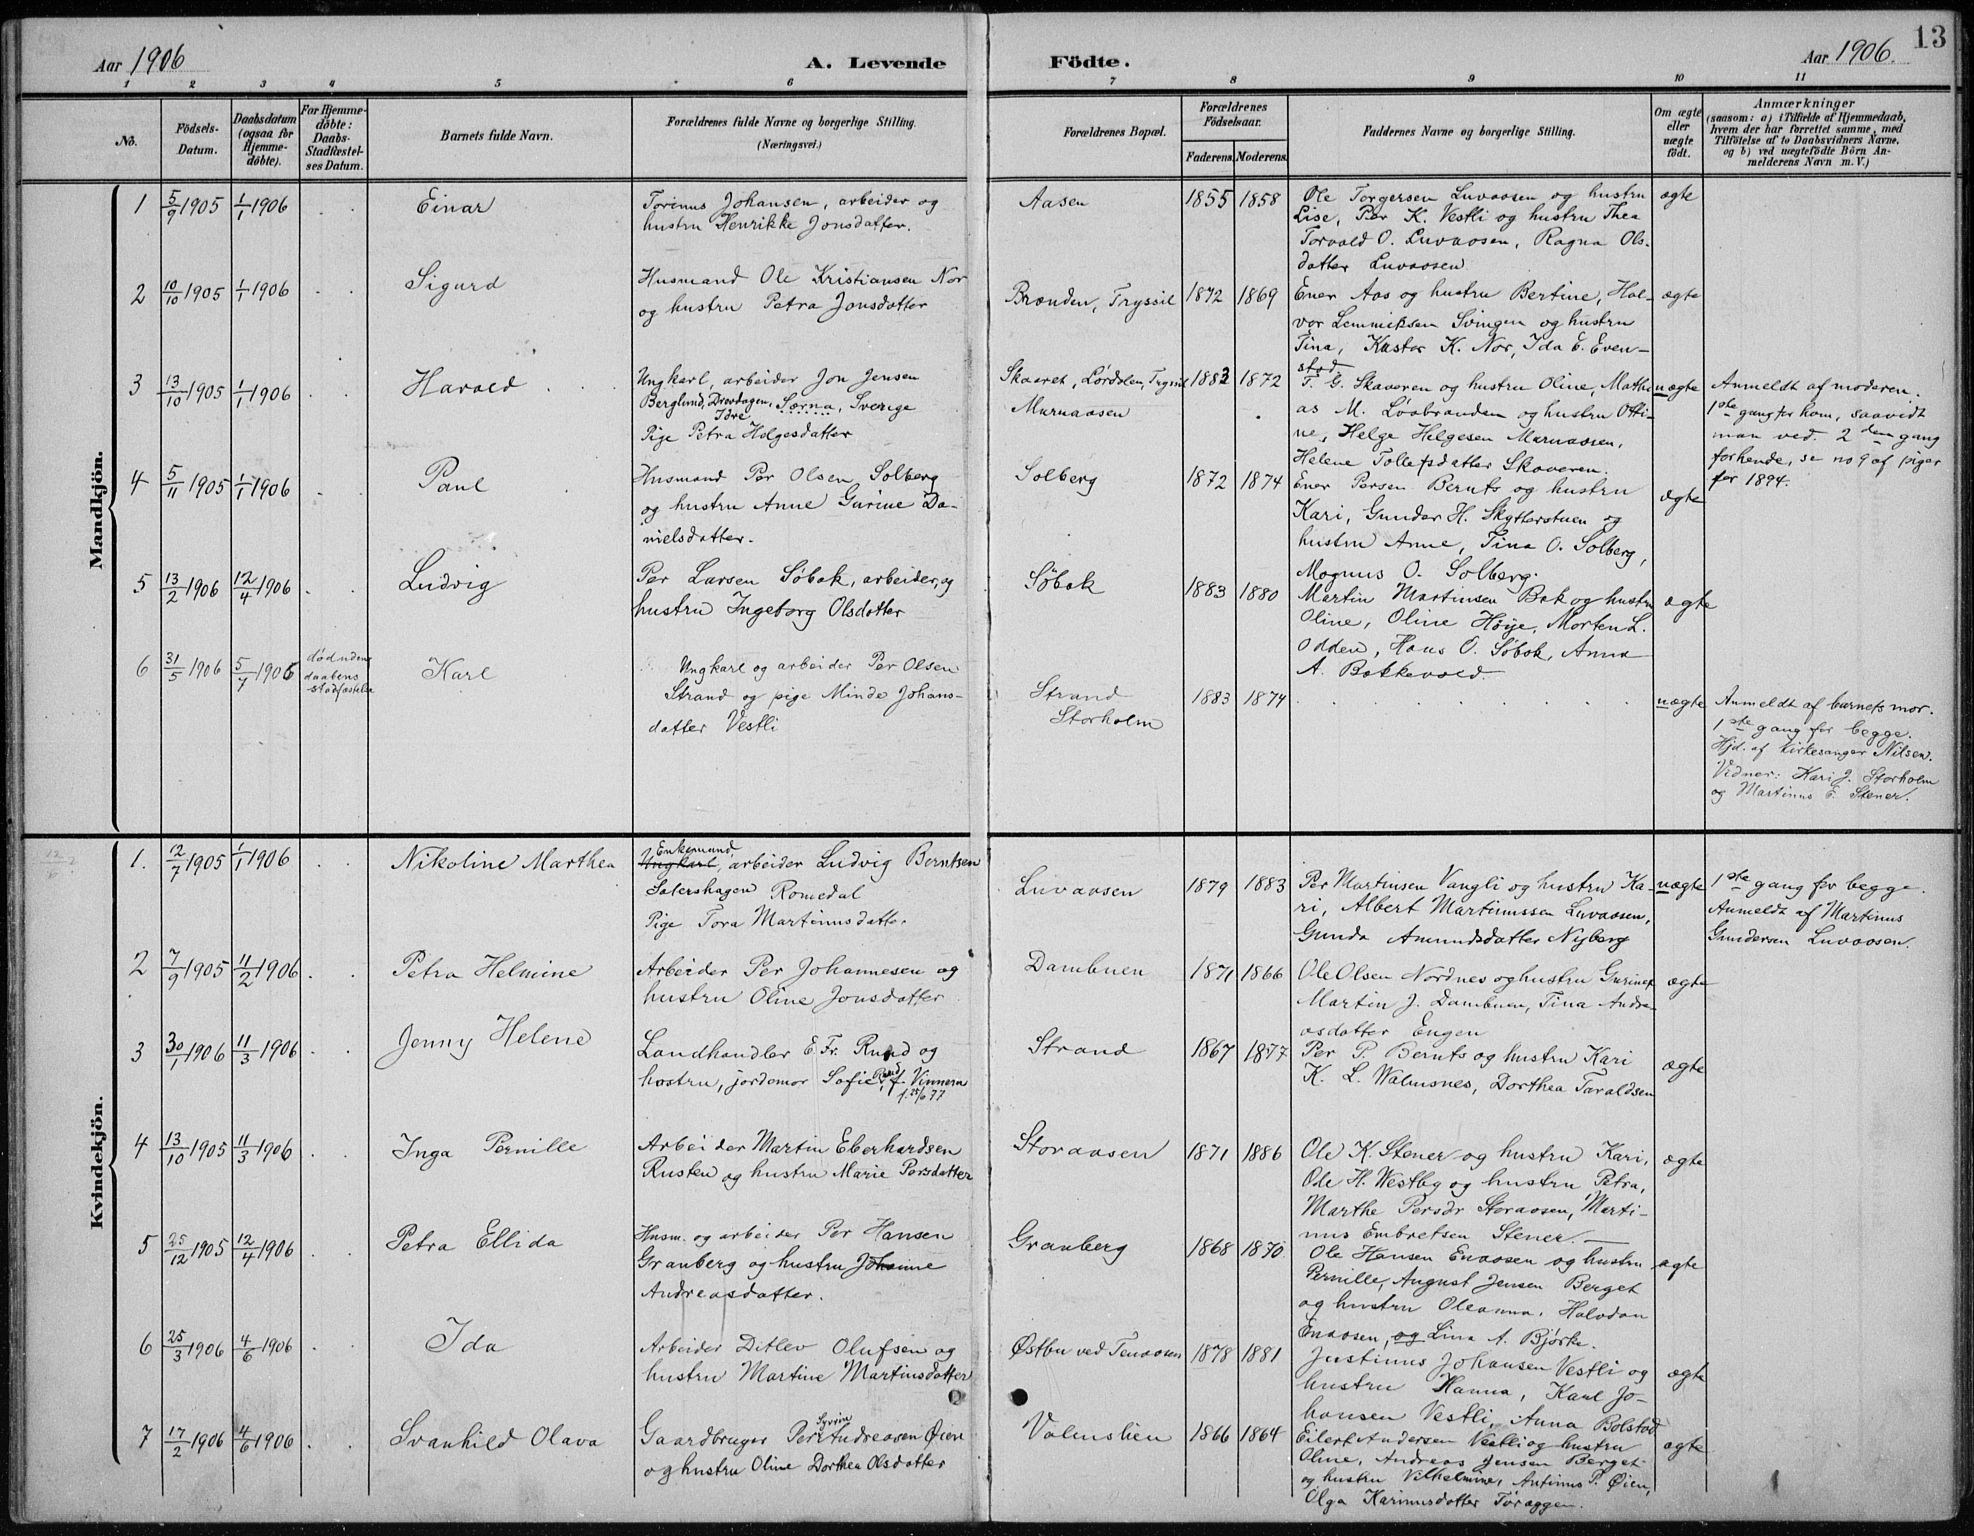 13
Aar 1906 A. Levende Födte. Aar 1906.
1 2 3 4 5 6 7 8 9 10 11
No.
Födsels-
Datum.
Daabsdatum
(ogsaa for
Hjemme-
döbte).
For Hjemme-
döbte:
Daabs-
Stadfæstel-
ses Datum.
Barnets fulde Navn.
Forældrenes fulde Navne og borgerlige Stilling.
(Næringsvei.)
Forældrenes Bopæl.
Forældrenes
Födselsaar.
Faderens. Moderens.
Faddernes Navne og borgerlige Stilling.
Om ægte
eller
uægte
födt.
Anmærkninger
(saasom: a) i Tilfælde af Hjemmedaab,
hvem der har forrettet samme, med
Tilföielse af to Daabsvidners Navne,
og b) ved uægtefödte Börn An-
melderens Navn m. V.)
Mandkjön.
1 5/9 1905 1/1 1906 Einar
Torinus Johansen, arbeider og
hustru Henrikke Jonsdatter.
Aasen 1855 1858
Ole Torgersen Luvaasen og hustru
Lise, Per K. Vestli og hustru Thea
Torvald O. Luvaasen, Ragna Ols-
datter Luvaasen
ægte
2 10/10 1905 1/1 1906 Sigurd
Husmand Ole Kristiansen Nor
og hustru Petra Jonsdatter
Brænden, Tryssil 1872 1869
Ener Aas og hustru Bertine, Hal-
vor Svingen og hustru
Tina, K. Nor, Ida E. Even-
stad
ægte
3 13/10 1905 1/1 1906 Harald
Ungkarl, arbeider Jon Jensen
Berglund, Drevdagen, Særna, Sverige
Idre
Pige Petra Helgesdatter
Skaaret, Lørdalen, Tryssil 1882 1872
Murnaasen
T. G. Skaaren og hustru Oline, Mathi-
as M. Løvbranden og hustru Otti-
ne, Helge Helgesen Murnaasen,
Helene Tollefsdatter Skaaren.
uægte
Anmeldt af moderen.
1ste gang for ham, saavidt
man ved. 2den gang
for hende, se no 9 af piger
for 1894.
4 5/11 1905 1/1 1906 Paul
Husmand Per Olsen Solberg
og hustru Anne Gurine Da-
nielsdatter.
Solberg 1872 1874
Ener Persen Beruts og hustru
Kari, Gunder H. Skytterstuen og
hustru Anne, Tina O. Solberg,
Magnus O. Solberg.
ægte
5 13/2 1906 12/4 1906 Ludvig
Per Larsen Søbak, arbeider, og
hustru Ingeborg Olsdatter
Søbak 1883 1880
Martin Martinsen Bak og hustru
Oline, Oline Høye, Morten L.
Odden, Hans O. Søbak, Anna
A. Bakkevold.
ægte
6 31/5 1906 5/7 1906
død uden
daabens
stadfæstelse
Karl
Ungkarl og arbeider Per Olsen
Strand og pige Minde Johans-
datter Vestli
Strand 1883 1874
Storholm
uægte
Anmeldt af barnets mor.
1ste gang for begge.
Hjd. af kirkesanger Nilsen.
Vidner: Kari J. Storholm
og Martinus E. Stener.
Kvindekjön.
1. 2/7 1905 1/1 1906 Nikoline Marthea
Enkemand
Ungkarl, arbeider Ludvig Berntsen
Sætershagen Romedal
Pige Tora Martinusdatter
Luvaasen 1879 1883
Per Martinsen Vangli og hustru Ka-
ri, Albert Martinussen Luvaasen,
Gunda Amundsdatter Nyberg
uægte
1ste gang for begge.
Anmeldt af Martinus
Gundersen Luvaasen.
2 7/9 1905 11/2 1906 Petra Helmine
Arbeider Per Johannesen og
hustru Oline Jonsdatter
Dambuen 1871 1866
Ole Olsen Nordnes og hustru Gurine,
Martin J. Dambuen, Tina Andre-
asdatter Engen
ægte
3 30/1 1906 11/3 1906 Jenny Helene
Landhandler E. Fr. Rund og
hustru, jordmor Sofie Rund, f. Vinnern
f. 25/6 77
Strand 1867 1877
Per P. Beruts og hustru Kari
K. L. Walmsnes, Dorthea Taraldsen
ægte
4 13/10 1905 11/3 1906 Inga Pernille
Arbeider Martin Eberhardsen
Rusten og hustru Marie Persdatter
Storaasen 1871 1886
Ole K. Stener og hustru Kari,
Ole H. Westby og hustru Petra,
Marthe Persdr Storaasen, Marti-
nus Embretsen Stener.
ægte
5 25/12 1905 12/4 1906 Petra Ellida
Husm. og arbeider Per Hansen
Granberg og hustru Johanne
Andreasdatter.
Granberg 1868 1870
Ole Hansen Enaasen og hustru
Pernille, August Jensen Berget
og hustru Oleanna, Halvdan
Enaasen, og Lina A. Bjørke.
ægte
6 25/3 1906 4/6 1906 Ida
Arbeider Ditlev Olufsen og
hustru Martine Martinsdatter
Østbu ved Tenaasen 1878 1881
Justinus Johansen Vestli og
hustru Hanna, Karl Jo-
hansen Vestli, Anna Bolstad
ægte
7 17/2 1906 4/6 1906 Svanhild Olava
Syvin
Gaardbruger Per Andreasen Øien
og hustru Oline Dorthea Olsdatter
Valmslien 1866 1864
Eilert Andersen Vestli og hustru
Oline, Andreas Jensen Berget
og hustru Vilhelmine, Antinus P. Øien,
Olga Karinusdatter Tøraggen.
ægte